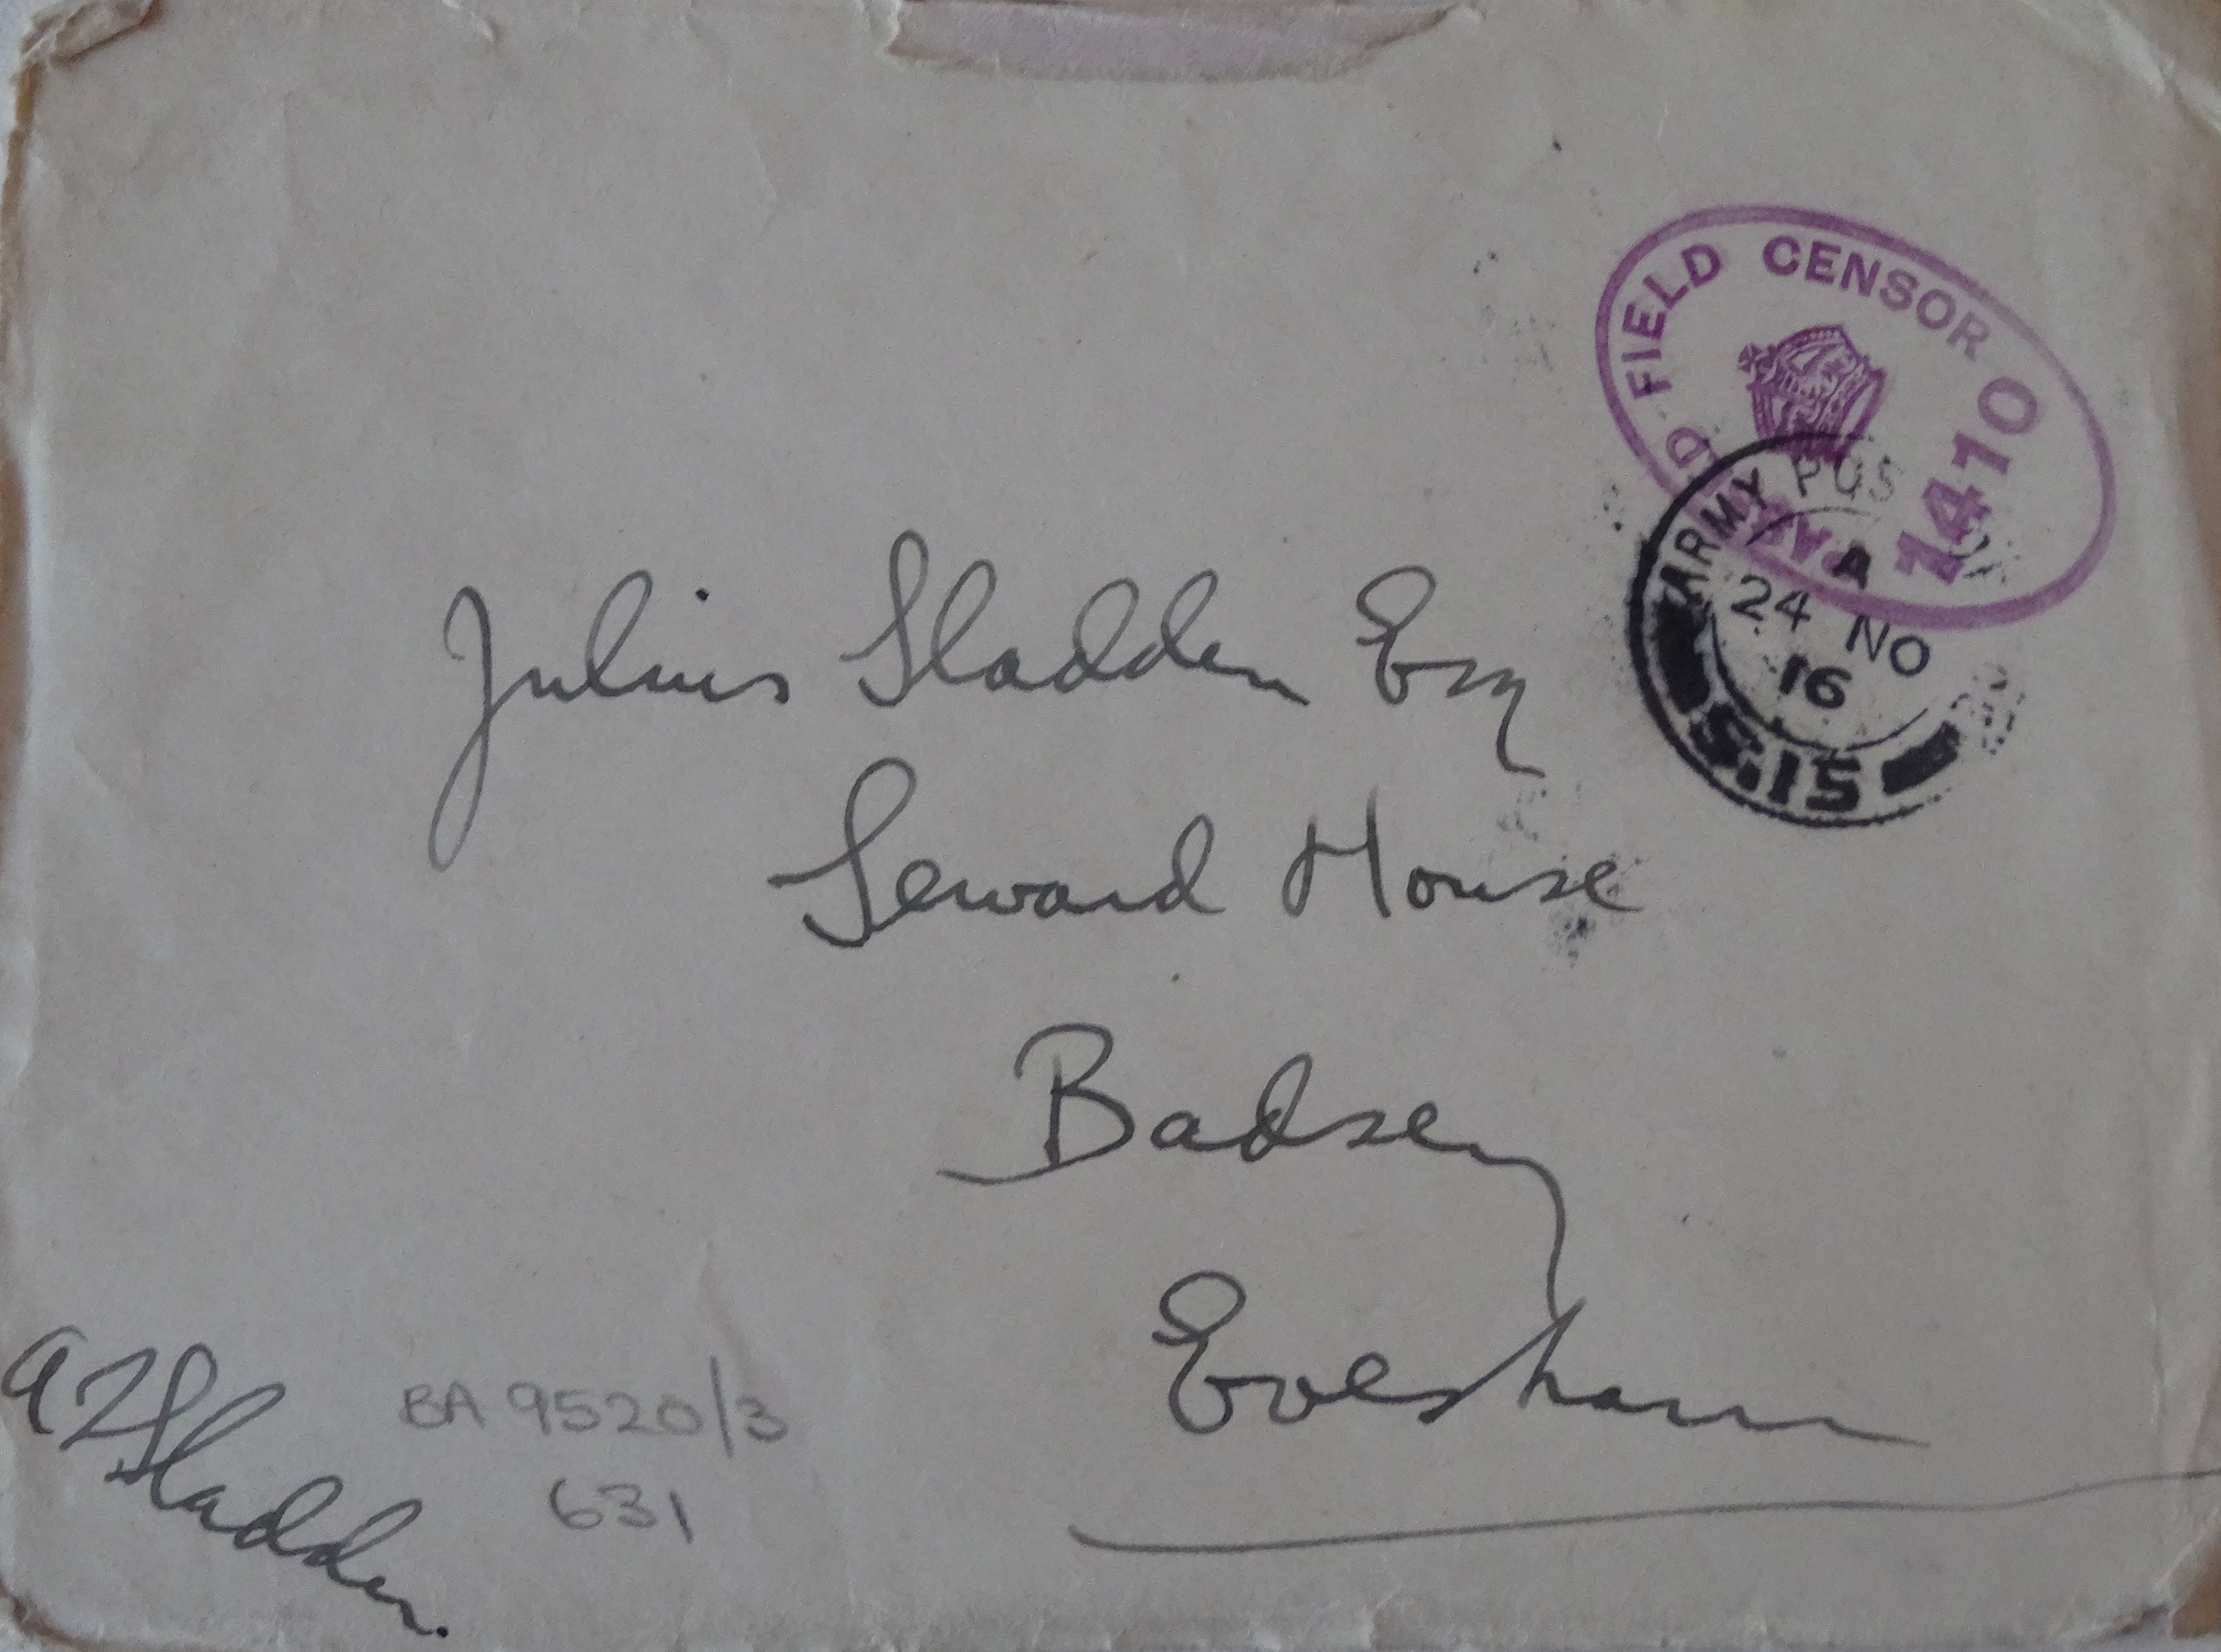 PASSED FIELD CENSOR
1410
ARMY POS
A
24 NO
16
S.15
Julius Sladden Esq
Seward House
Badsey
Evesham
A F Sladden.
BA 9520/3
631